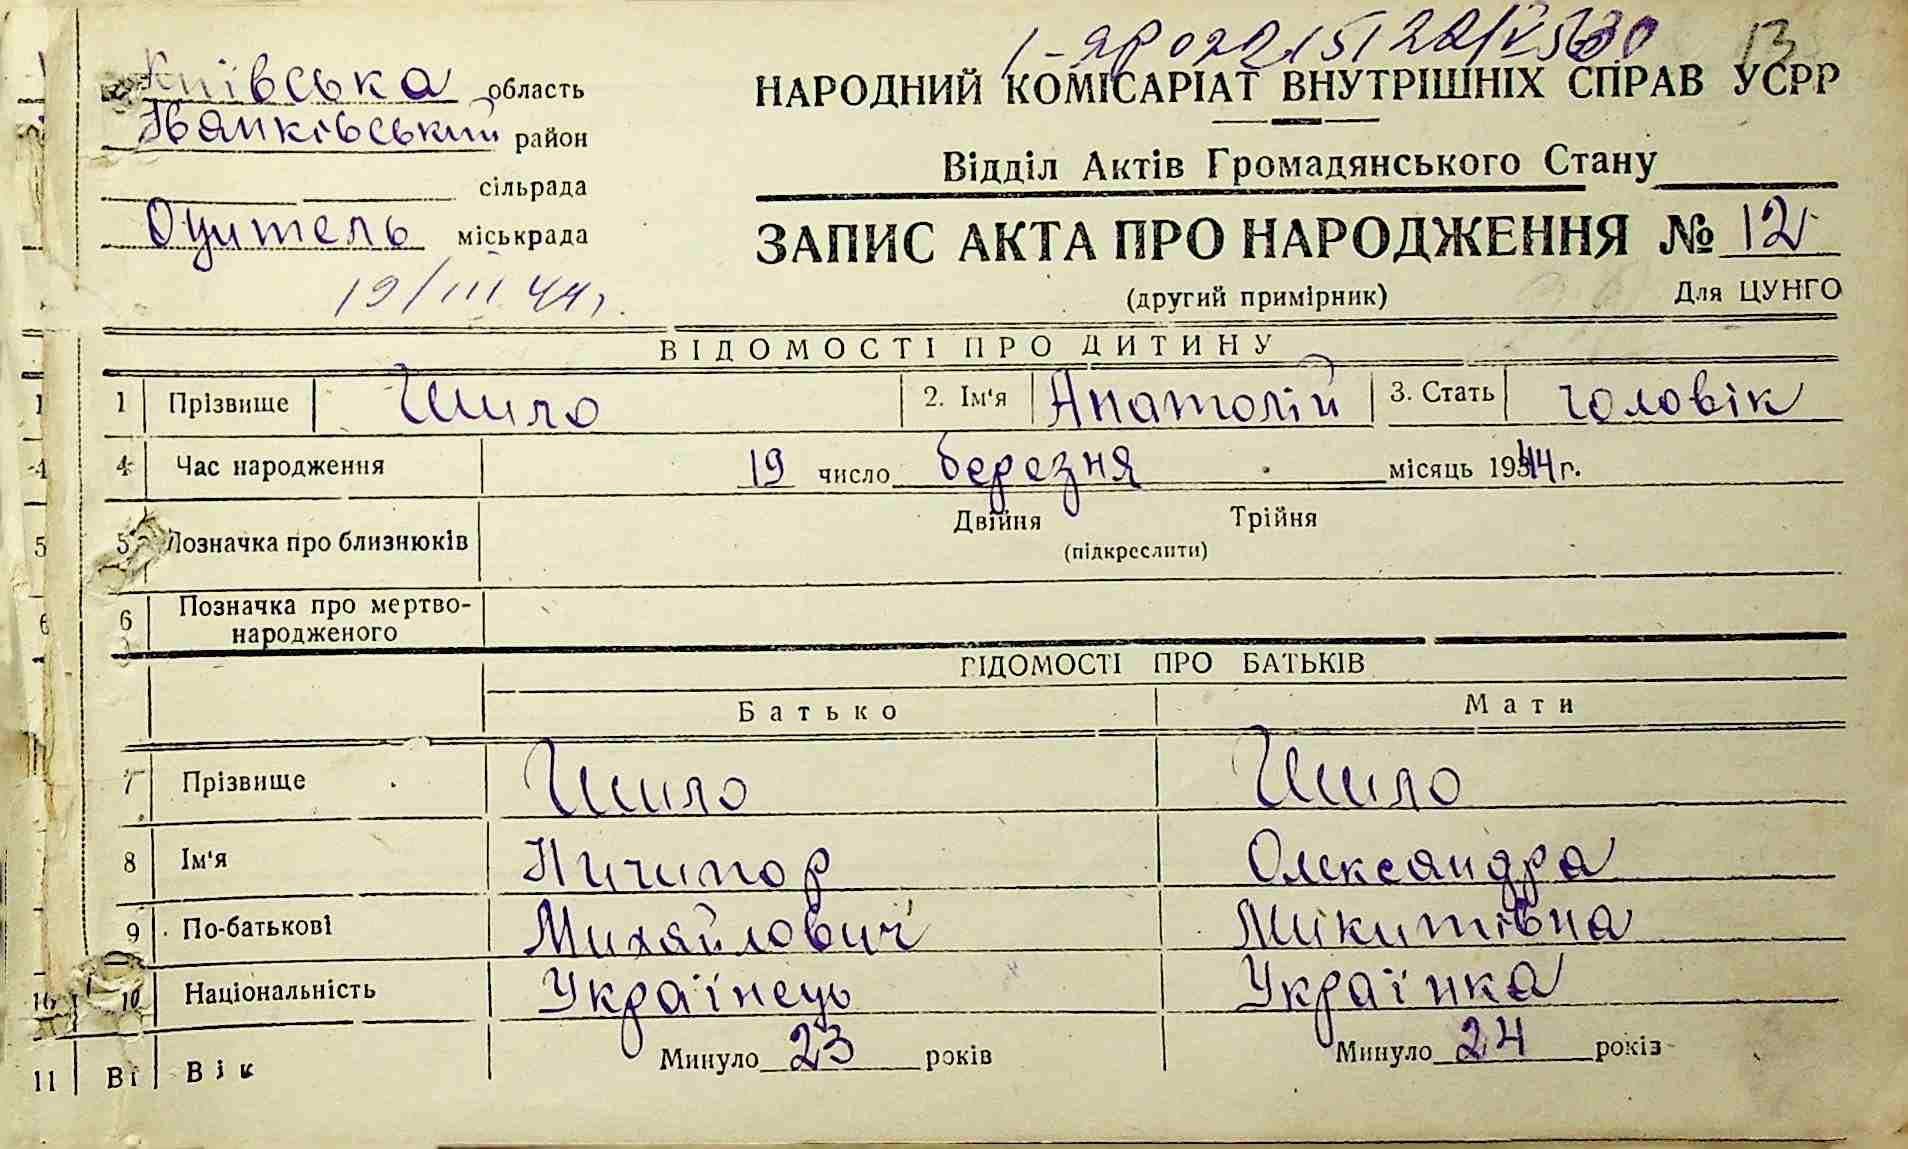 13
Київська область
НАРОДНИЙ КОМІСАРІАТ ВНУТРІШНІХ СПРАВ УСРР
Іванківський район
Відділ Актів Громадянського Стану
сільрада
Оцитель міськрада
ЗАПИС АКТА ПРО НАРОДЖЕННЯ № 12
19/III 44 г.
(другий примірник) Для ЦУНГО
ВІДОМОСТІ ПРО ДИТИНУ
1 Прізвище Шило 2. Ім'я Анатолій 3. Стать чоловік
4 Час народження 19 число березня місяць 1944 г.
Двійня Трійня
5 Позначка про близнюків
(підкреслити)
6 Позначка про мертво-
народженого
ВІДОМОСТІ ПРО БАТЬКІВ
Батько Мати
7 Прізвище Шило Шило
8 Ім'я Ничипор Олександра
9 По-батькові Михайлович Микитівна
10 Національність Українець Українка
11 Ві Вік Минуло 23 років Минуло 24 років